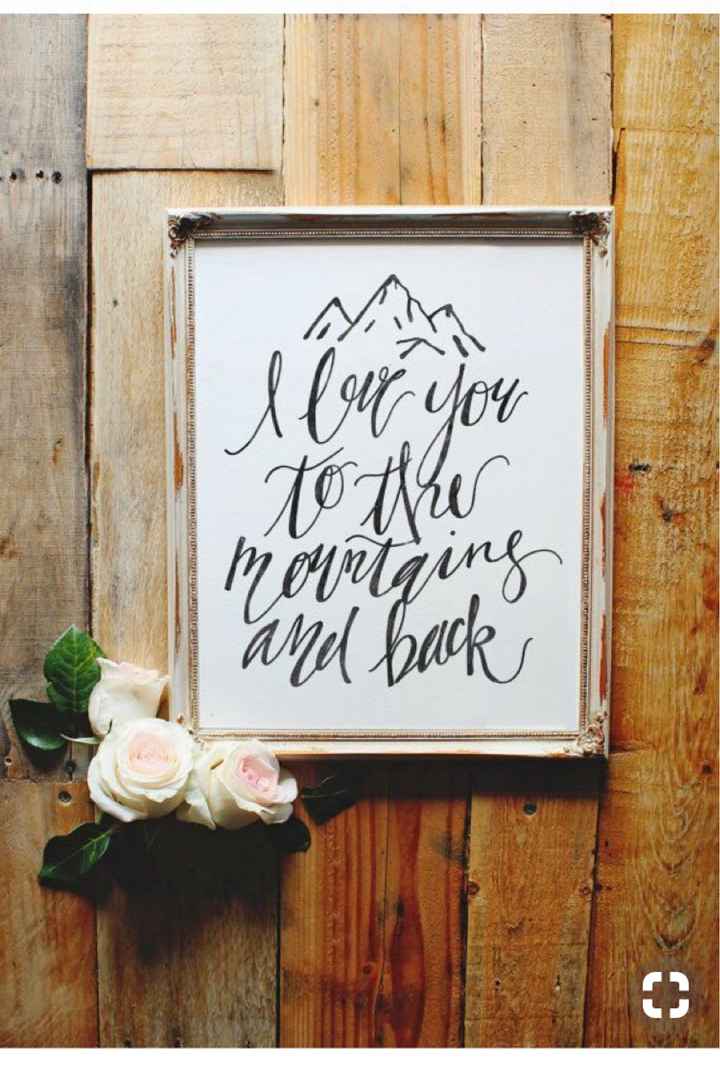 I love you
to the
mountains
and back